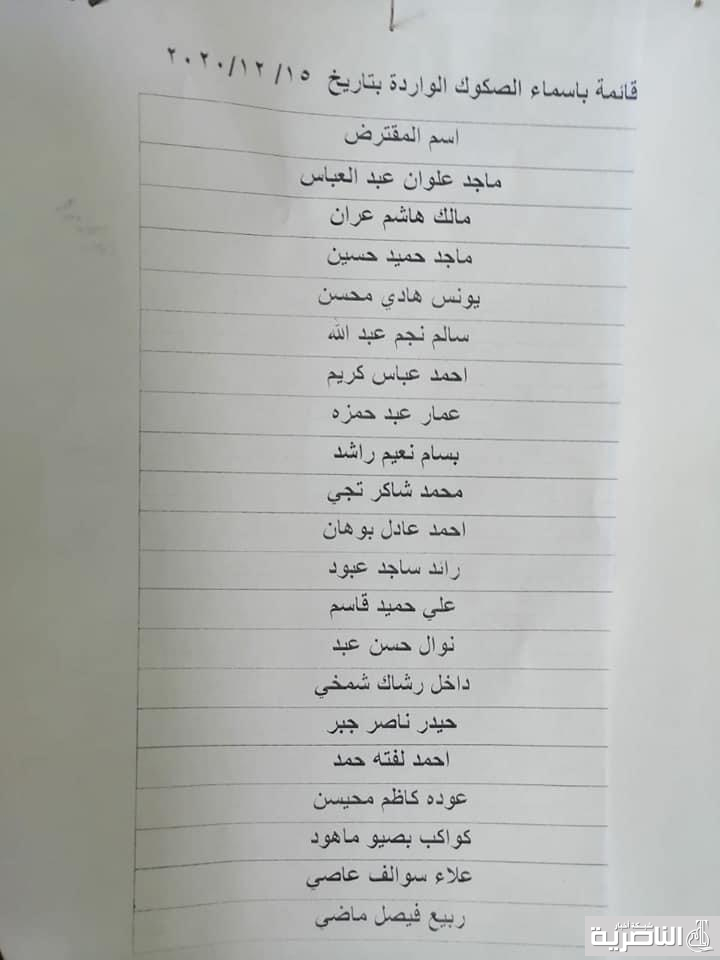 قائمة باسماء الصكوك الواردة بتاريخ ١٥/ ٢٠٢٠/١٢
اسم المقترض
ماجد علوان عبد العباس
مالك هاشم عران
ماجد حميد حسين
يونس هادي محسن
سالم نجم عبد الله
احمد عباس كريم
عمار عبد حمزه
بسام نعيم راشد
محمد شاكر تجي
احمد عادل بوهان
رائد ساجد عبود
علي حميد قاسم
نوال حسن عبد
داخل رشاك شمخي
حيدر ناصر جبر
احمد لفته حمد
عوده كاظم محيسن
كواكب بصيو ماهود
علاء سوالف عاصي
ربيع فيصل ماضي
شبكة اخبار
الناصرية